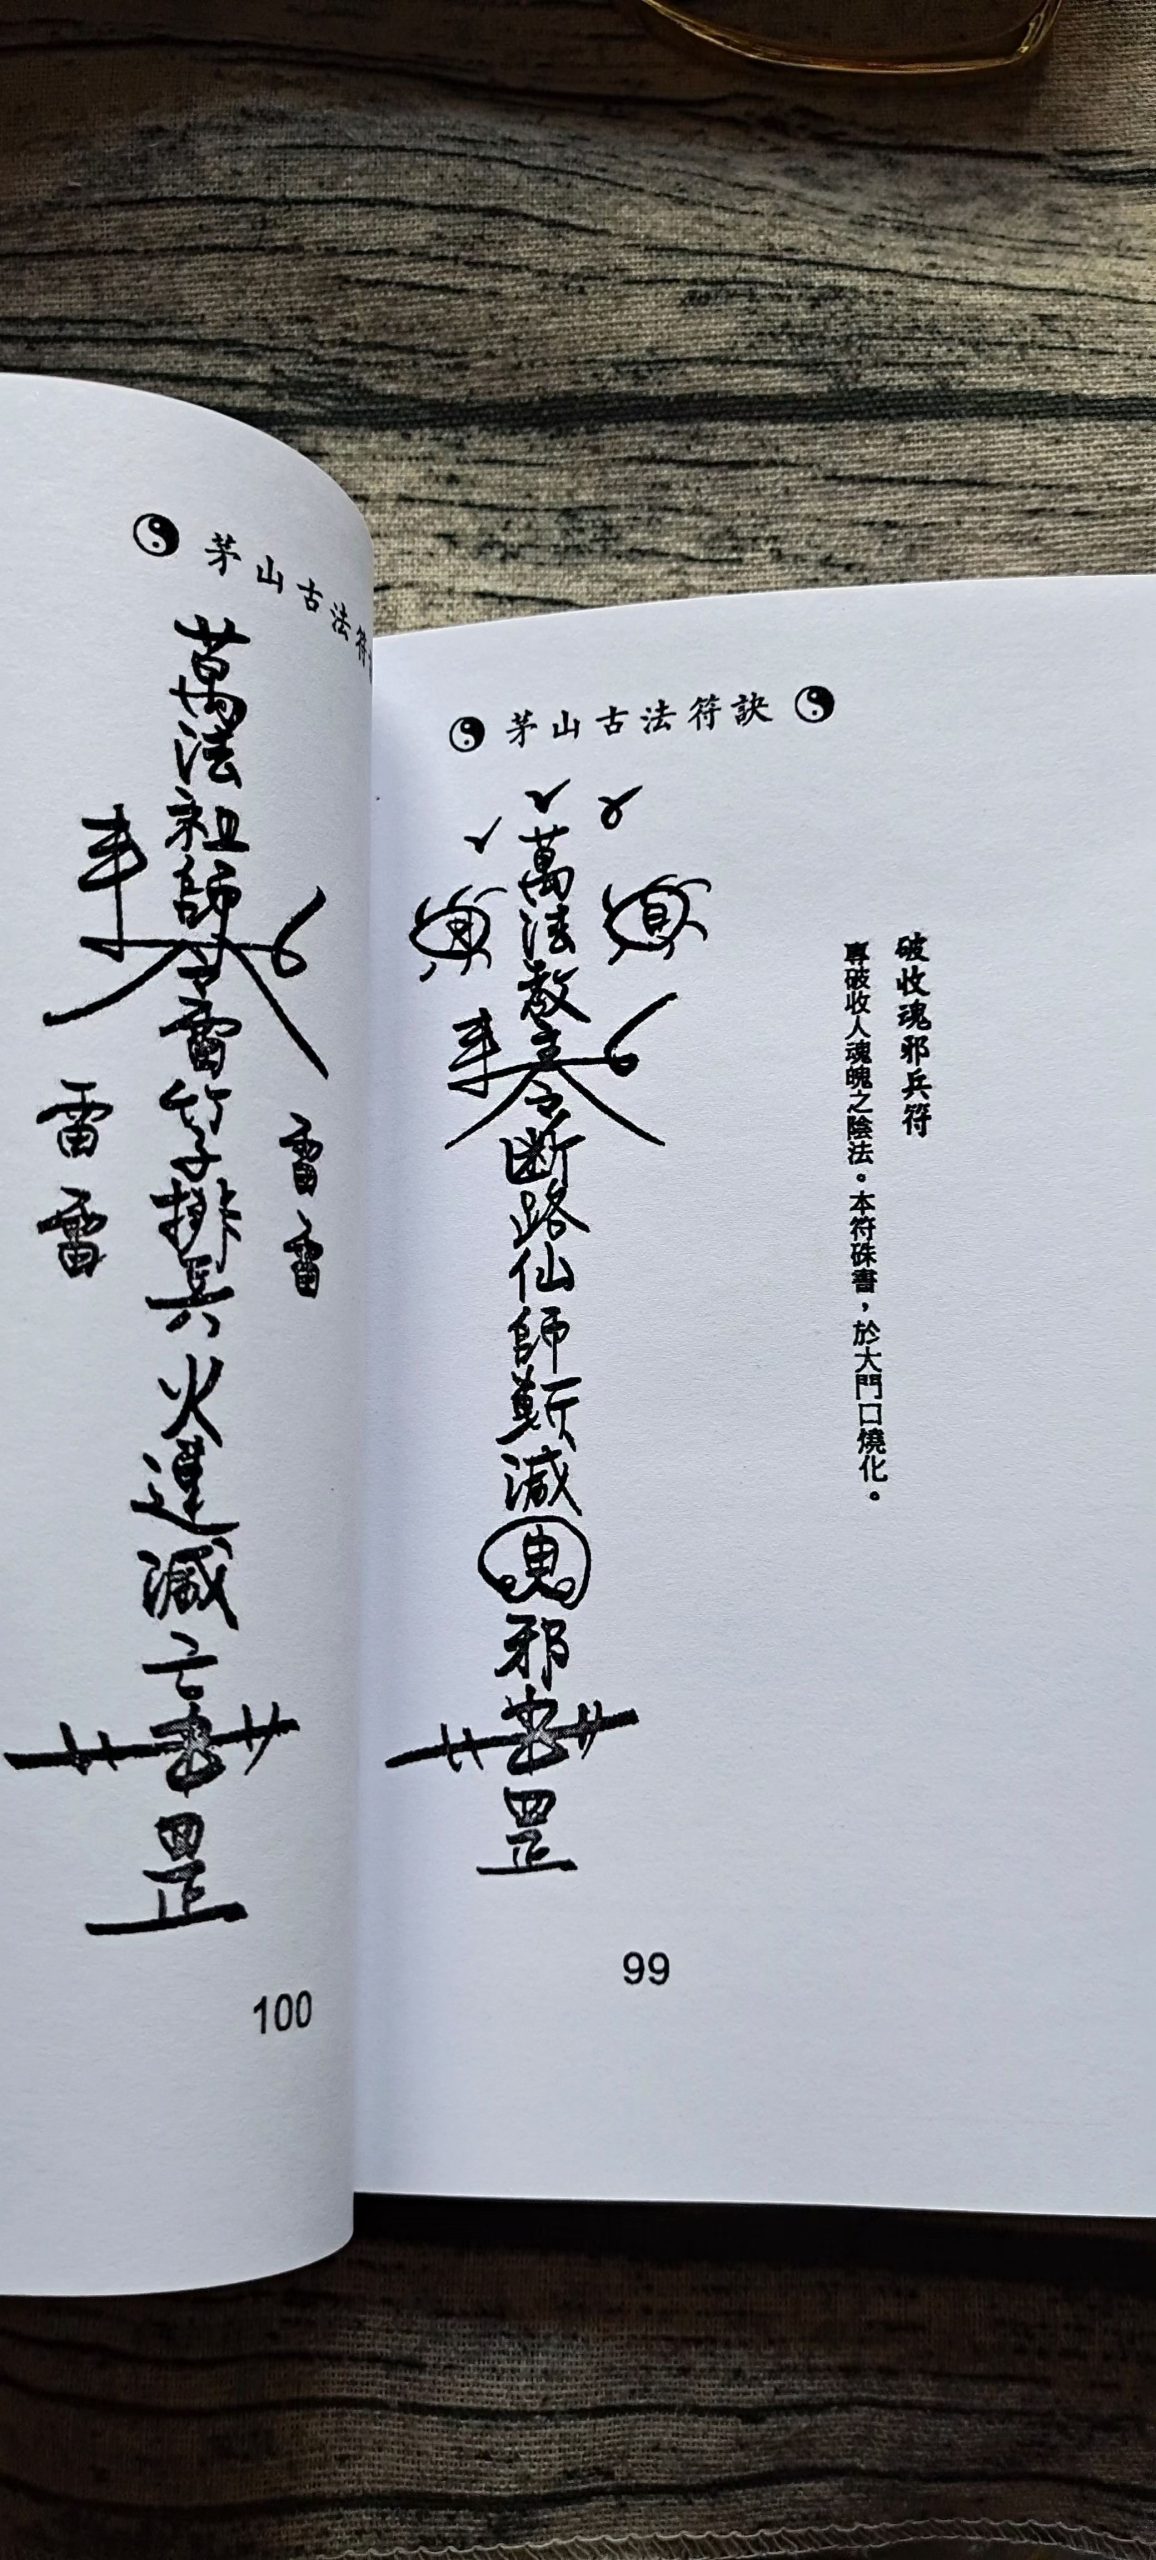 茅山古法符訣
破收魂邪兵符
專破收人魂魄之陰法。本符硃書，於大門口燒化。
萬法教主令斷路仙師斬滅邪
罡
99
茅山古法符
萬法祖師令雷竹子排兵火運滅亡
雷
雷
雷
雷
罡
100